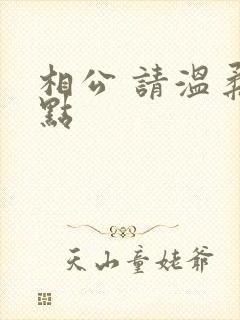 相公 請溫柔
點
天山童姥爺